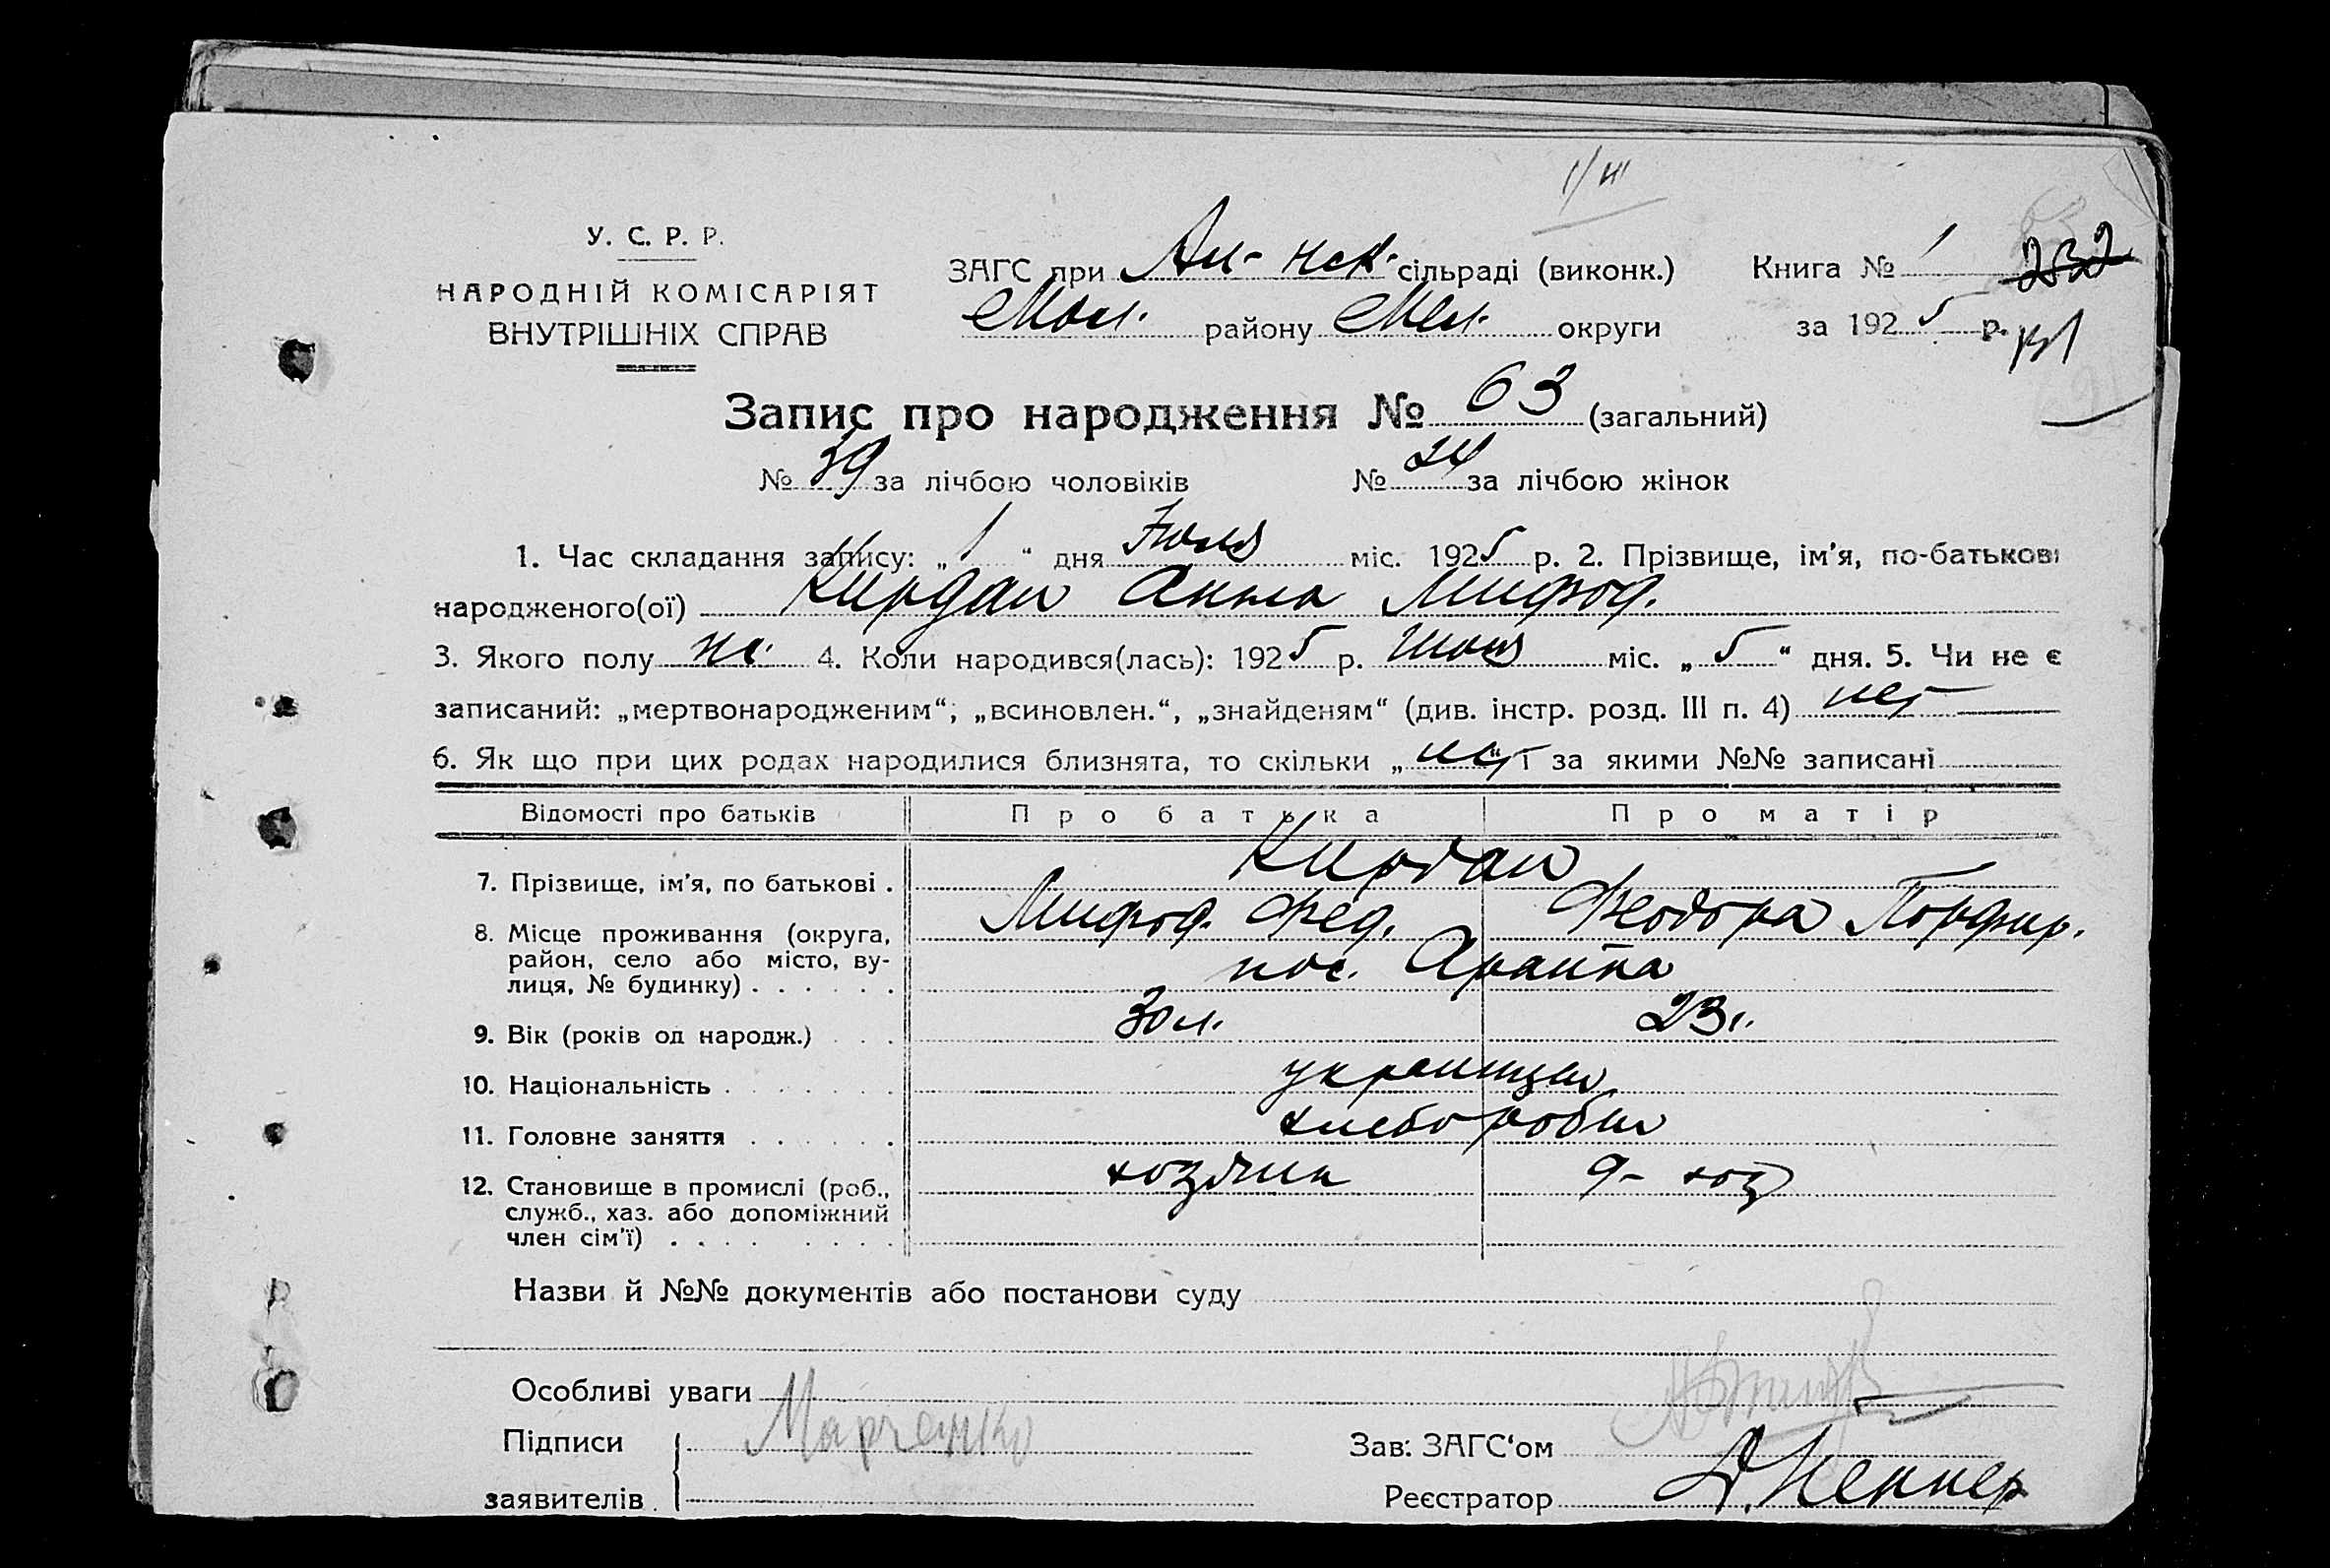 1/III
У. С. Р. Р.
НАРОДНІЙ КОМІСАРІЯТ
ВНУТРІШНІХ СПРАВ
ЗАГС при Ан-нск. сільраді (виконк.) Книга № 1 232
Мол. району Мел. округи за 1925 р.
Запис про народження № 63 (загальний)
№ 39 за лічбою чоловіків № 24 за лічбою жінок
1. Час складання запису: „ 1 “ дня Июля міс. 1925 р. 2. Прізвище, ім’я, по-батькові
народженого(ої) Кирдан Анна Мифод.
3. Якого полу ж. 4. Коли народився(лась): 1925 р. міс. „ 5 “ дня. 5. Чи не є
записаний: „мертвонародженим“; „всиновлен.“, „знайденям“ (див. інстр. розд. III п. 4) нет
6. Як що при цих родах народилися близнята, то скільки „ нет “ і за якими №№ записані
Відомості про батьків Про батька Про матір
7. Прізвище, ім’я, по батькові . Кирдан
Мифод. Фед. Феодора Порфир.
8. Місце проживання (округа, район, село або місто, вулиця, № будинку) . . . . . . пос.
9. Вік (років од народж.) . . . 30 л. 23 г.
10. Національність . . . . . . . украинцы
11. Головне заняття . . . . . . хлеборобы
12. Становище в промислі (роб., служб., хаз. або допоміжний член сім’ї) . . . . . . . . хозяин д- хоз
Назви й №№ документів або постанови суду
Особливі уваги
Підписи заявителів Марченко
Зав. ЗАГС‘ом
Реєстратор Д. Неннер